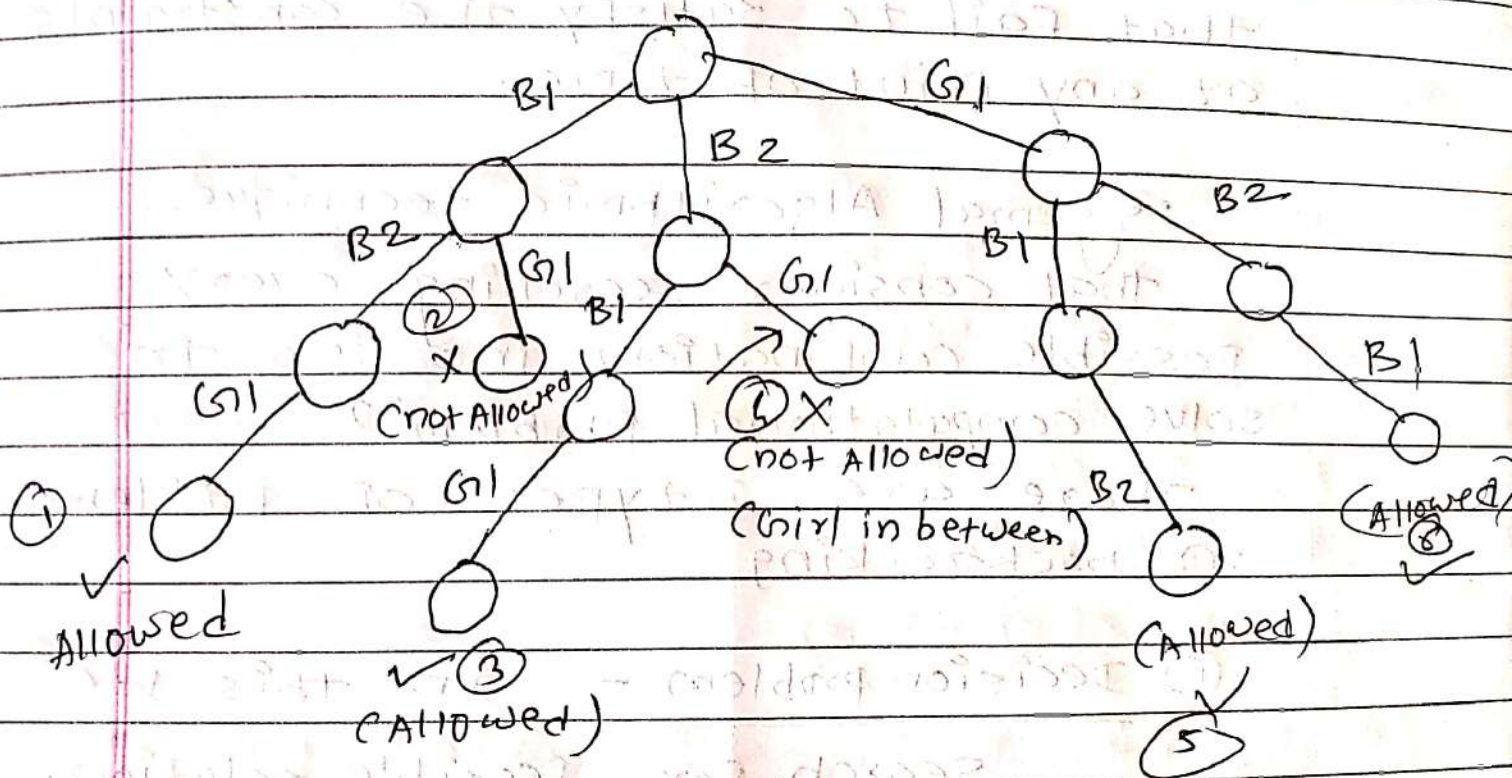 B1
G1
B2
B2
G1
B1
G1
B1
B2
②
X
(not Allowed)
G1
X
(not Allowed)
(Girl in between)
G1
B2
B1
①
✓
Allowed
✓ ③
(Allowed)
(Allowed)
✓
5
(Allowed)
✓